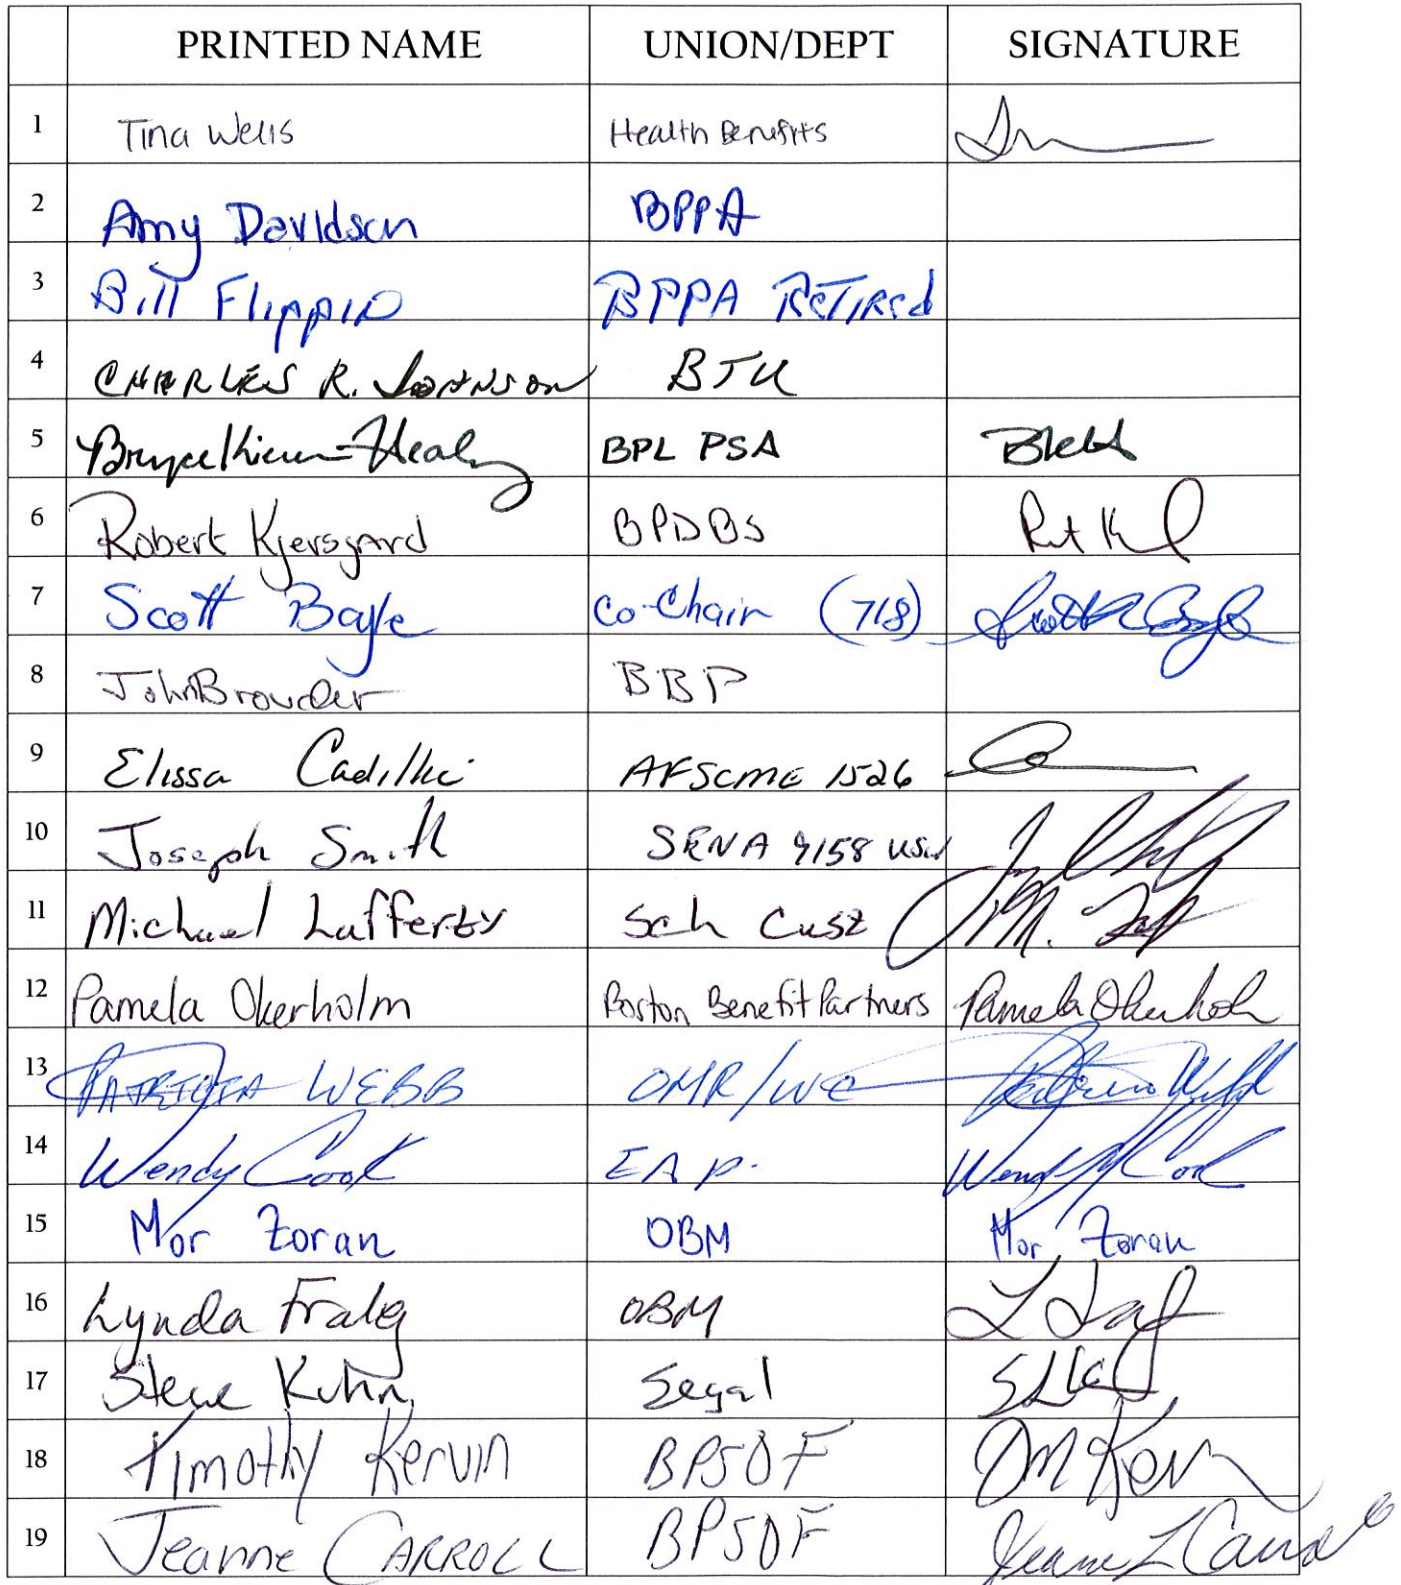 PRINTED NAME UNION/DEPT SIGNATURE
1 Tina Wells Health Benefits
2 Amy Davidson BPPA
3 Bill Flippin BPPA RETIRED
4 CHARLES R. JOHNSON BTU
5 Healy BPL PSA
6 Robert Kjersgard BPDBS
7 Scott Bayle Co-Chair (718)
8 John Browder BBP
9 Elissa Cadillic AFSCME 1526
10 Joseph Smith SENA 9158 USW
11 Michael Lafferty Sch Cust M.
12 Pamela Okerholm Boston Benefit Partners Pamela Okerholm
13 PATRICIA WEBB OMR/WC
14 Wendy Cook EAP. Wendy Cook
15 Mor Zoran OBM Mor Zoran
16 Lynda Fraley OBM
17 Steve Kuhn Segal
18 Timothy Kervin BPSOF
19 Jeanne CARROLL BPSOF Jeanne L Carroll